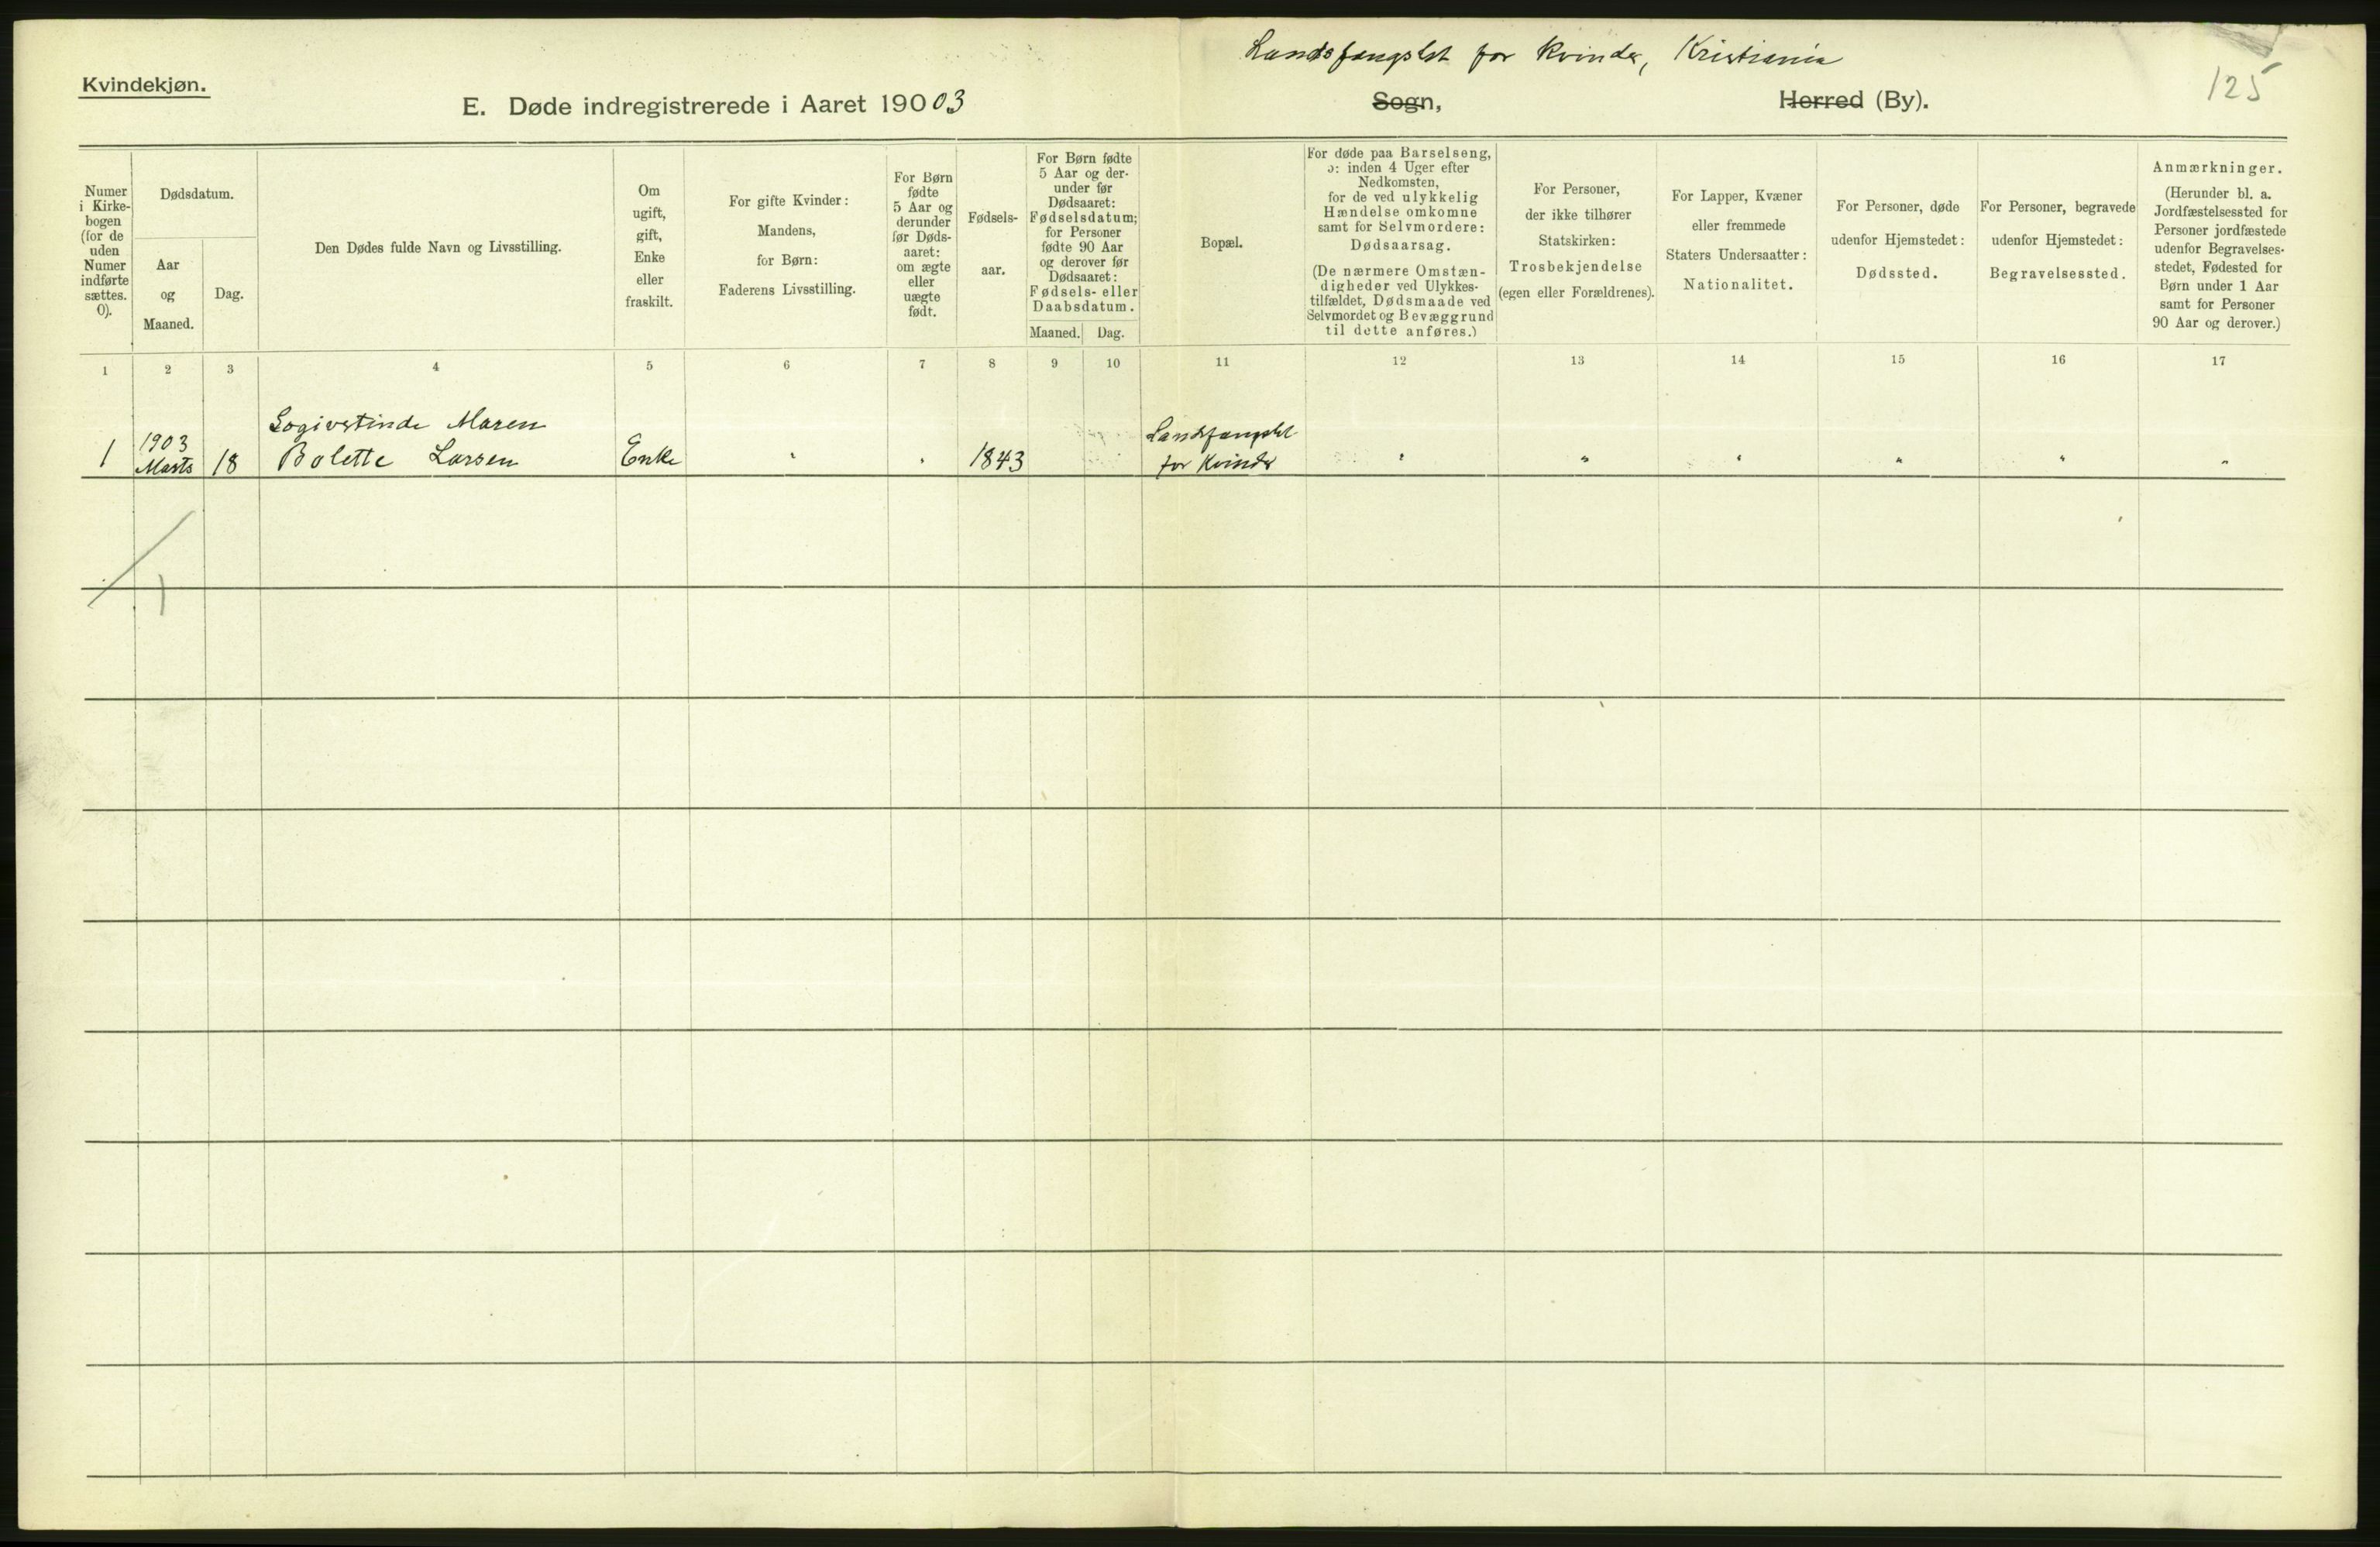 Landsfængslet for kvinder, Kristiania
125
Kvindekjøn.
E. Døde indregistrerede i Aaret 19003
Sogn,
Herred (By).
Numer
i Kirke-
bogen
(for de
uden
Numer
indførte
sættes.
0).
Dødsdatum.
Aar
og
Maaned.
Dag.
Den Dødes fulde Navn og Livsstilling.
Om
ugift,
gift,
Enke
eller
fraskilt.
For gifte Kvinder:
Mandens,
for Børn:
Faderens Livsstilling.
For Børn
fødte
5 Aar og
derunder
før Døds-
aaret:
om ægte
eller
uægte
født.
Fødsels-
aar.
For Børn fødte
5 Aar og der-
under før
Dødsaaret:
Fødselsdatum;
for Personer
fødte 90 Aar
og derover før
Dødsaaret:
Fødsels- eller
Daabsdatum.
Maaned.
Dag.
Bopæl.
For døde paa Barselseng,
ɔ: inden 4 Uger efter
Nedkomsten,
for de ved ulykkelig
Hændelse omkomne
samt for Selvmordere:
Dødsaarsag.
(De nærmere Omstæn-
digheder ved Ulykkes-
tilfældet, Dødsmaade ved
Selvmordet og Bevæggrund
til dette anføres.)
For Personer,
der ikke tilhører
Statskirken:
Trosbekjendelse
(egen eller Forældrenes).
For Lapper, Kvæner
eller fremmede
Staters Undersaatter:
Nationalitet.
For Personer, døde
udenfor Hjemstedet:
Dødssted.
For Personer, begravede
udenfor Hjemstedet:
Begravelsessted.
Anmærkninger.
(Herunder bl. a.
Jordfæstelsessted for
Personer jordfæstede
udenfor Begravelses-
stedet, Fødested for
Børn under 1 Aar
samt for Personer
90 Aar og derover.)
1 2 3 4 5 6 7 8 9 10 11 12 13 14 15 16 17
1
1903
Marts
18
Logivertinde Maren
Bolette Larsen
Enke
"
"
1843
Landsfængslet
for Kvinder
" " " " " "
1